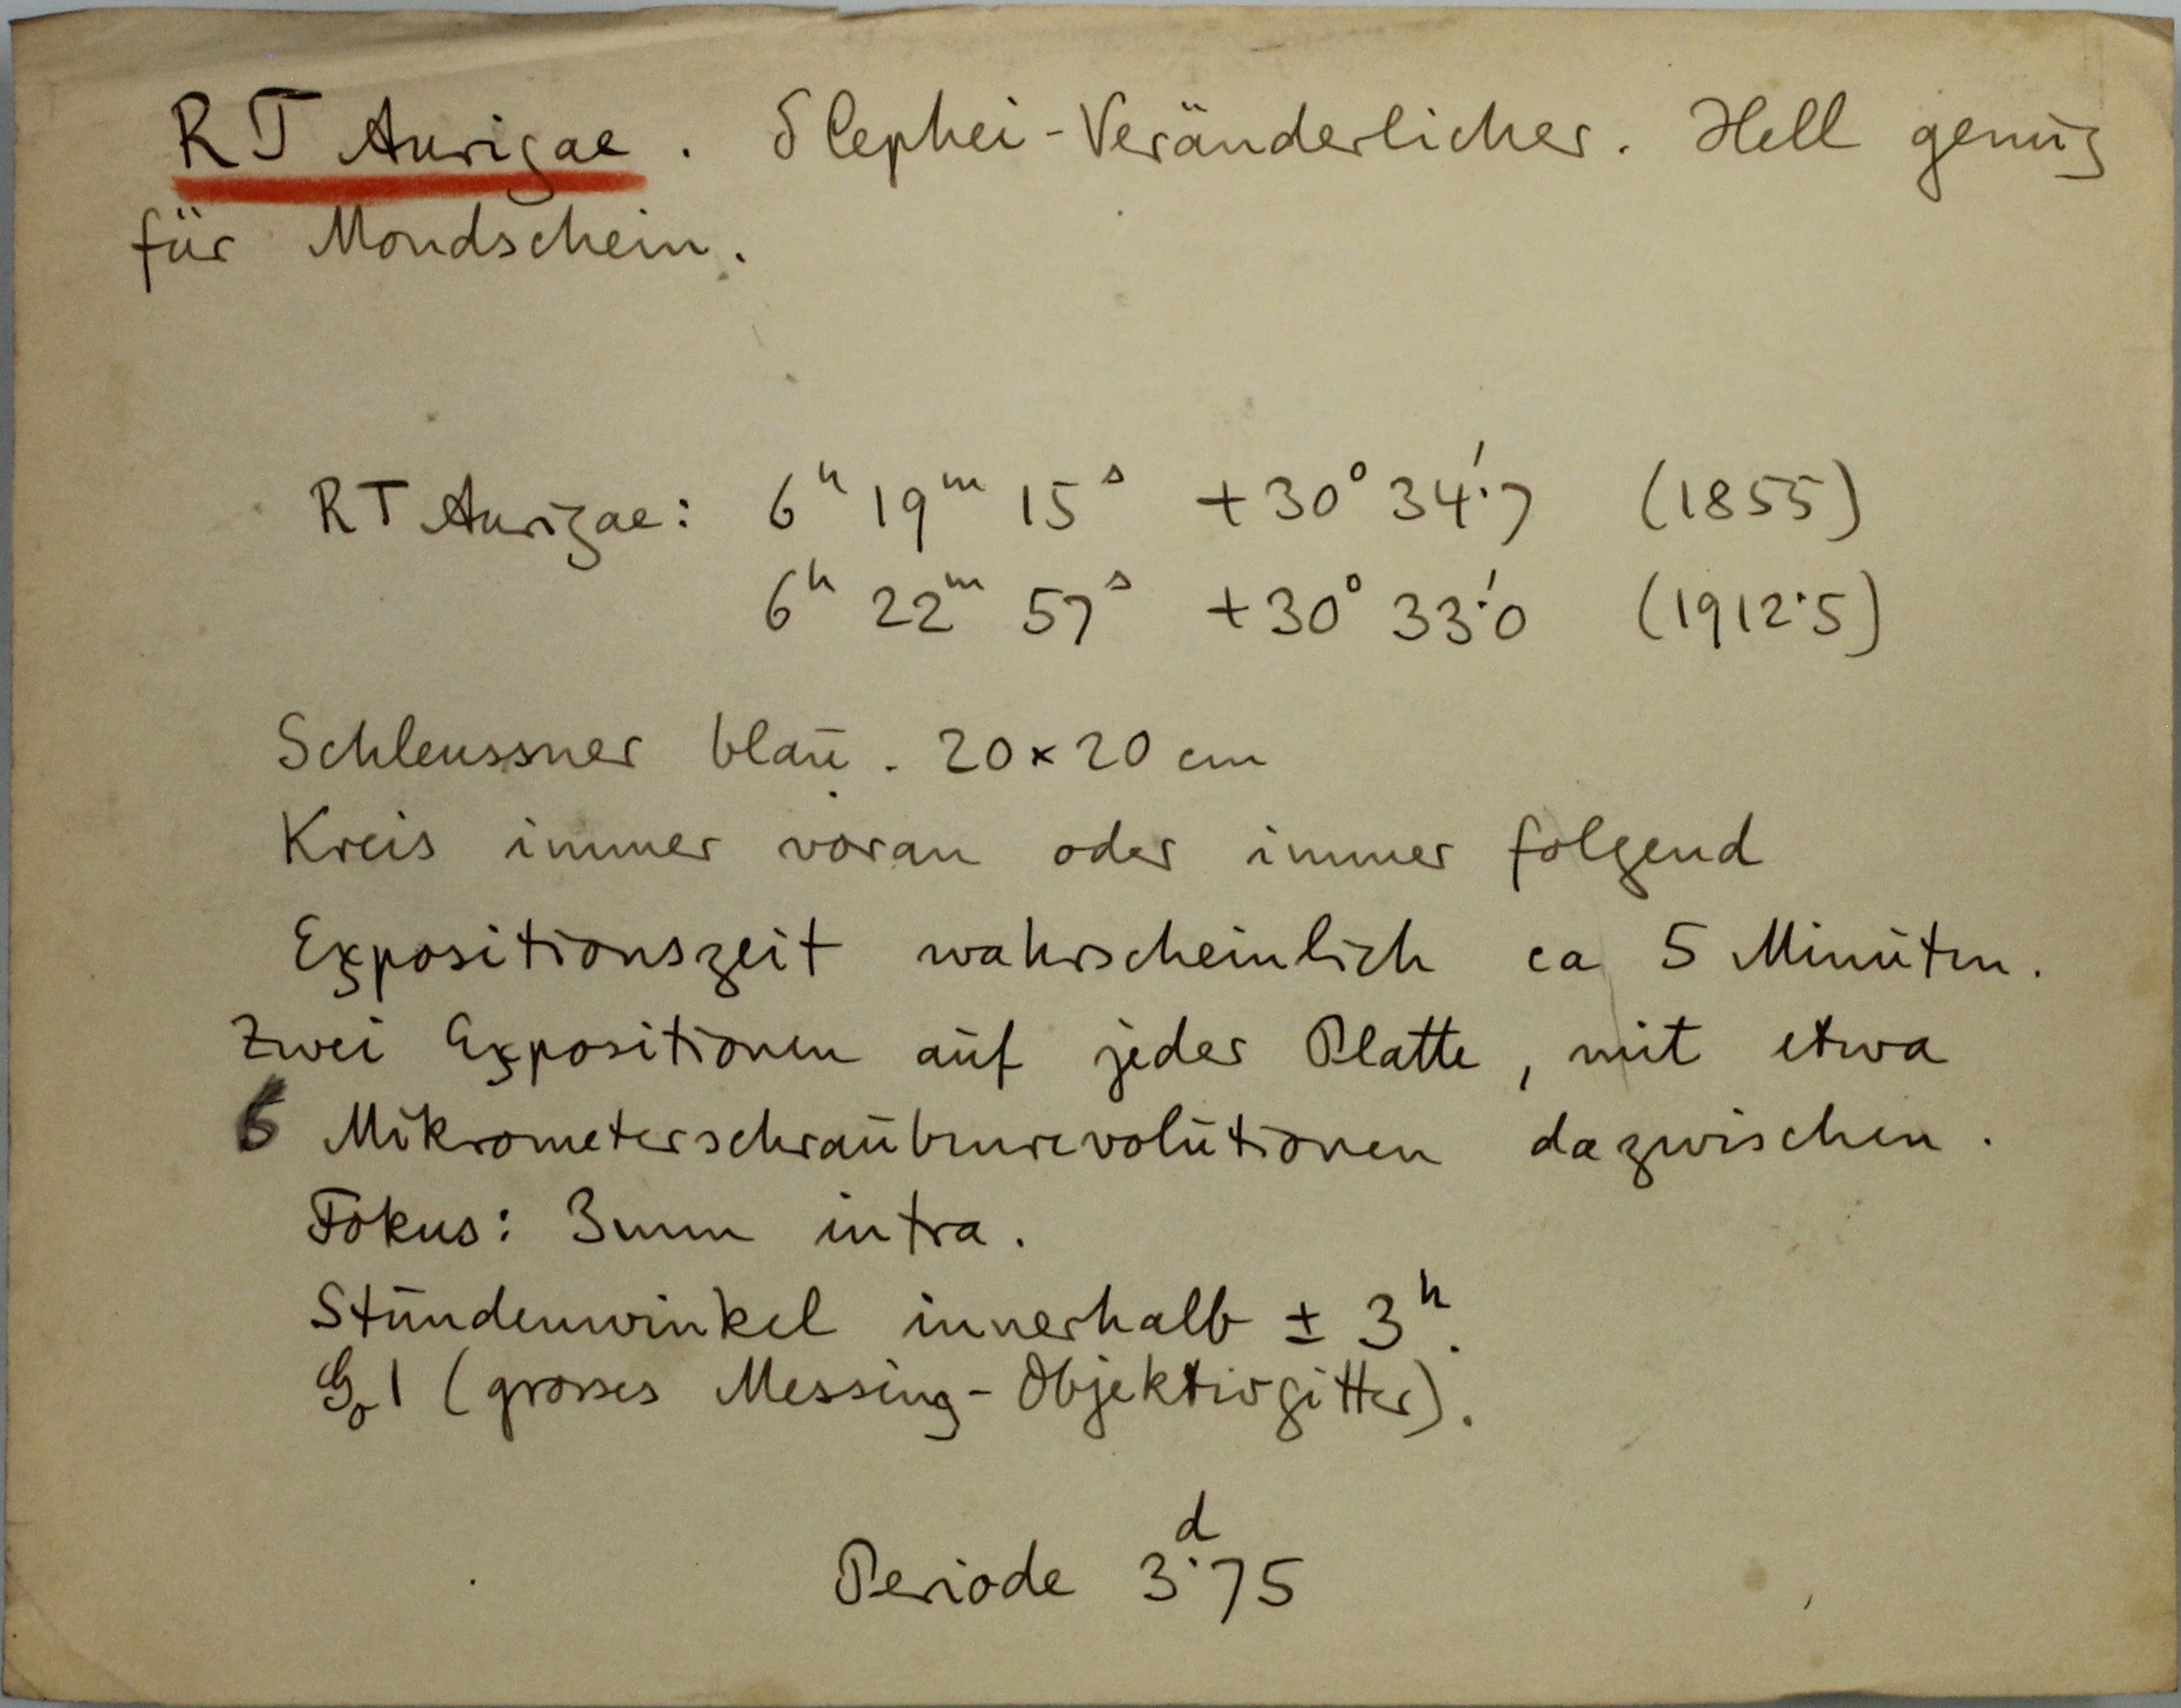 RT Aurigae. δ Cephei-Veränderlicher. Hell genug
für Mondschein.
RT Aurigae: 6ʰ 19ᵐ 15ˢ +30° 34'.7 (1855)
6ʰ 22ᵐ 57ˢ +30° 33'.0 (1912.5)
Schleussner blau. 20×20 cm
Kreis immer voran oder immer folgend
Expositionszeit wahrscheinlich ca 5 Minuten.
Zwei Expositionen auf jeder Platte, mit etwa
6 Mikrometerschraubenrevolutionen dazwischen.
Fokus: 3mm intra.
Stundenwinkel innerhalb ± 3ʰ.
1 (grosses Messing-Objektivgitter).
Periode 3ᵈ.75